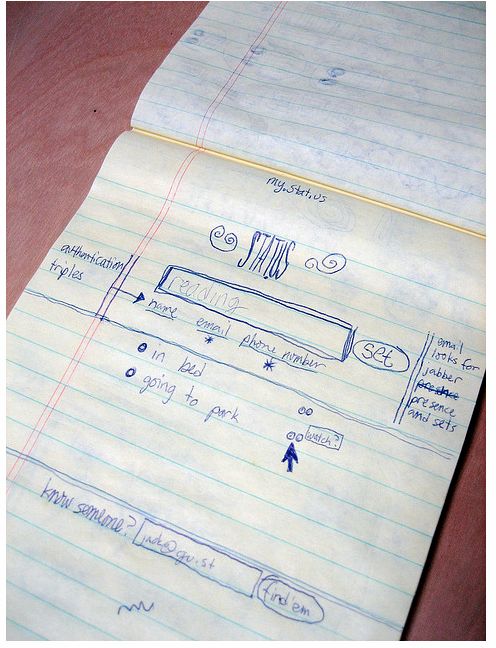 my.stat.us
STATUS
authentication
triples
reading
set
name email phone number
in bed
going to park
watch?
email
looks for
jabber
presence
presence
and sets
know someone?
find'em